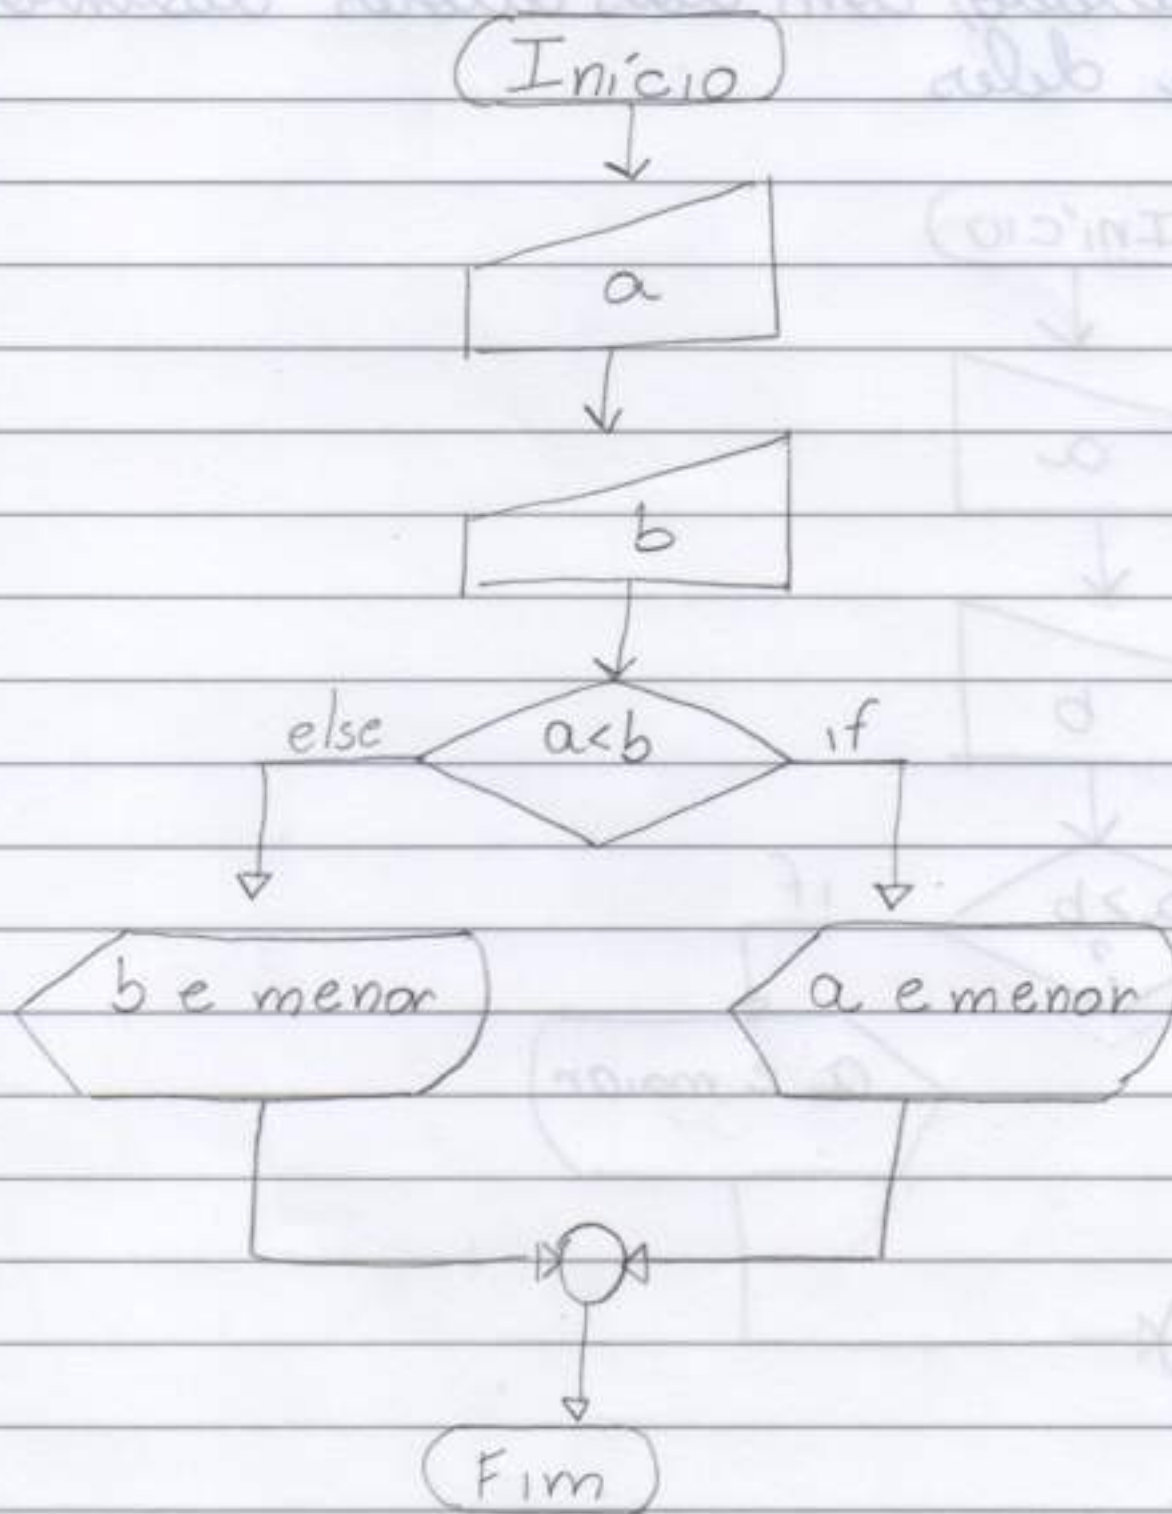 Início
a
b
else a<b if
b e menor a e menor
Fim